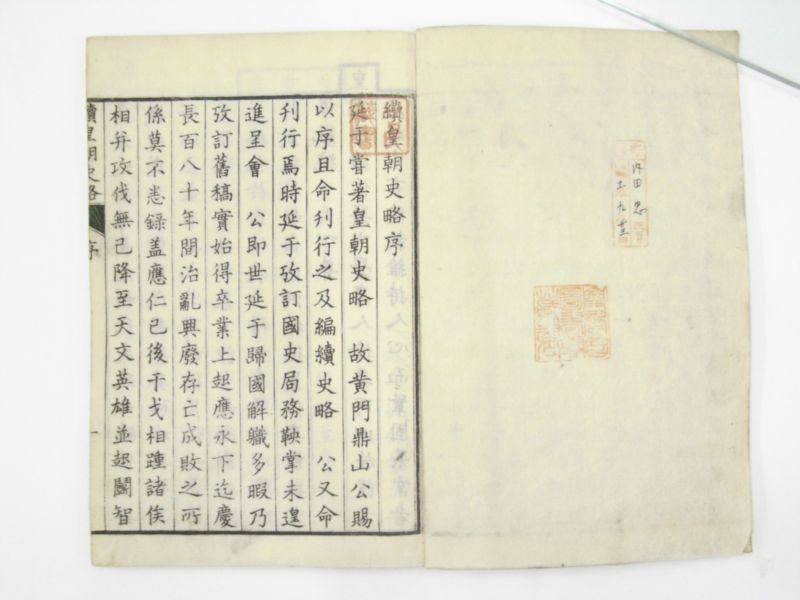 内田忠
續皇朝史略序
延于嘗著皇朝史略　故黄門鼎山公賜
以序且命刊行之及編續史略　公又命
刊行焉時延于攷訂國史局務鞅掌未遑
進呈會　公即世延于歸國解職多暇乃
攷訂舊稿實始得卒業上起應永下迄慶
長百八十年間治亂興廢存亡成敗之所
係莫不悉録盖應仁已後干戈相踵諸侯
相并攻伐無已降至天文英雄並起鬪智
續皇朝史略
序
一